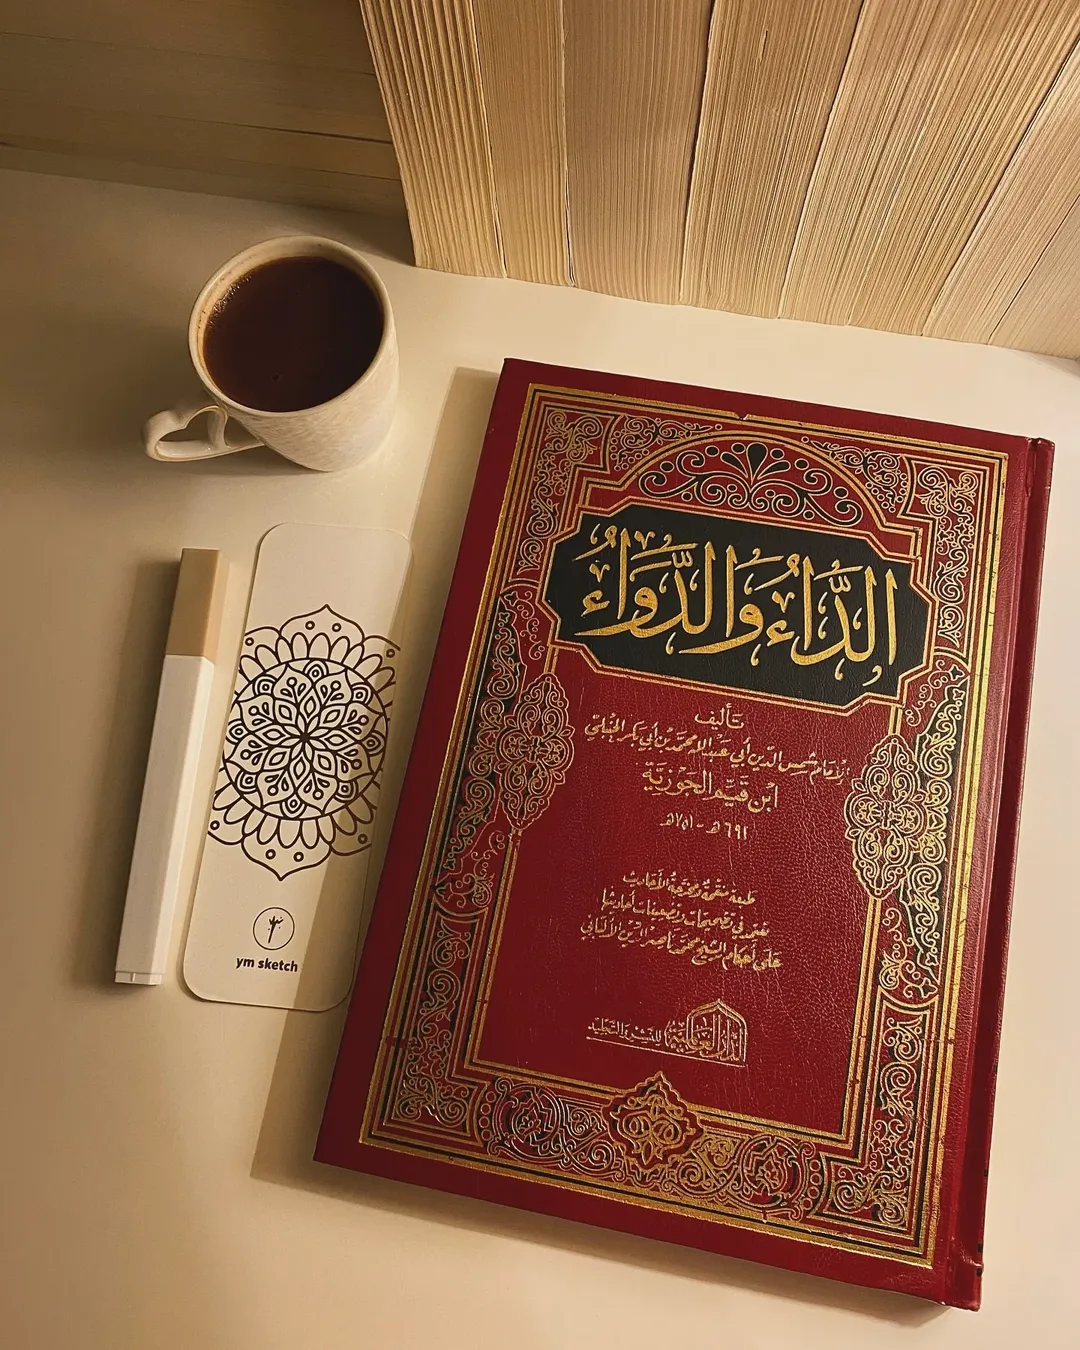 الدَّاءُ وَالدَّوَاءُ
تأليف
الإمام شمس الدين أبي عبد الله محمد بن أبي بكر الحنبلي
ابن قيم الجوزية
٦٩١هـ - ٧٥١هـ
طبعة منقحة ومخرجة الأحاديث
تحتوي تصحيحات وتضعيفات أحاديثها
على أحكام الشيخ محمد ناصر الدين الألباني
الدار العالمية للنشر والتجليد
ym sketch